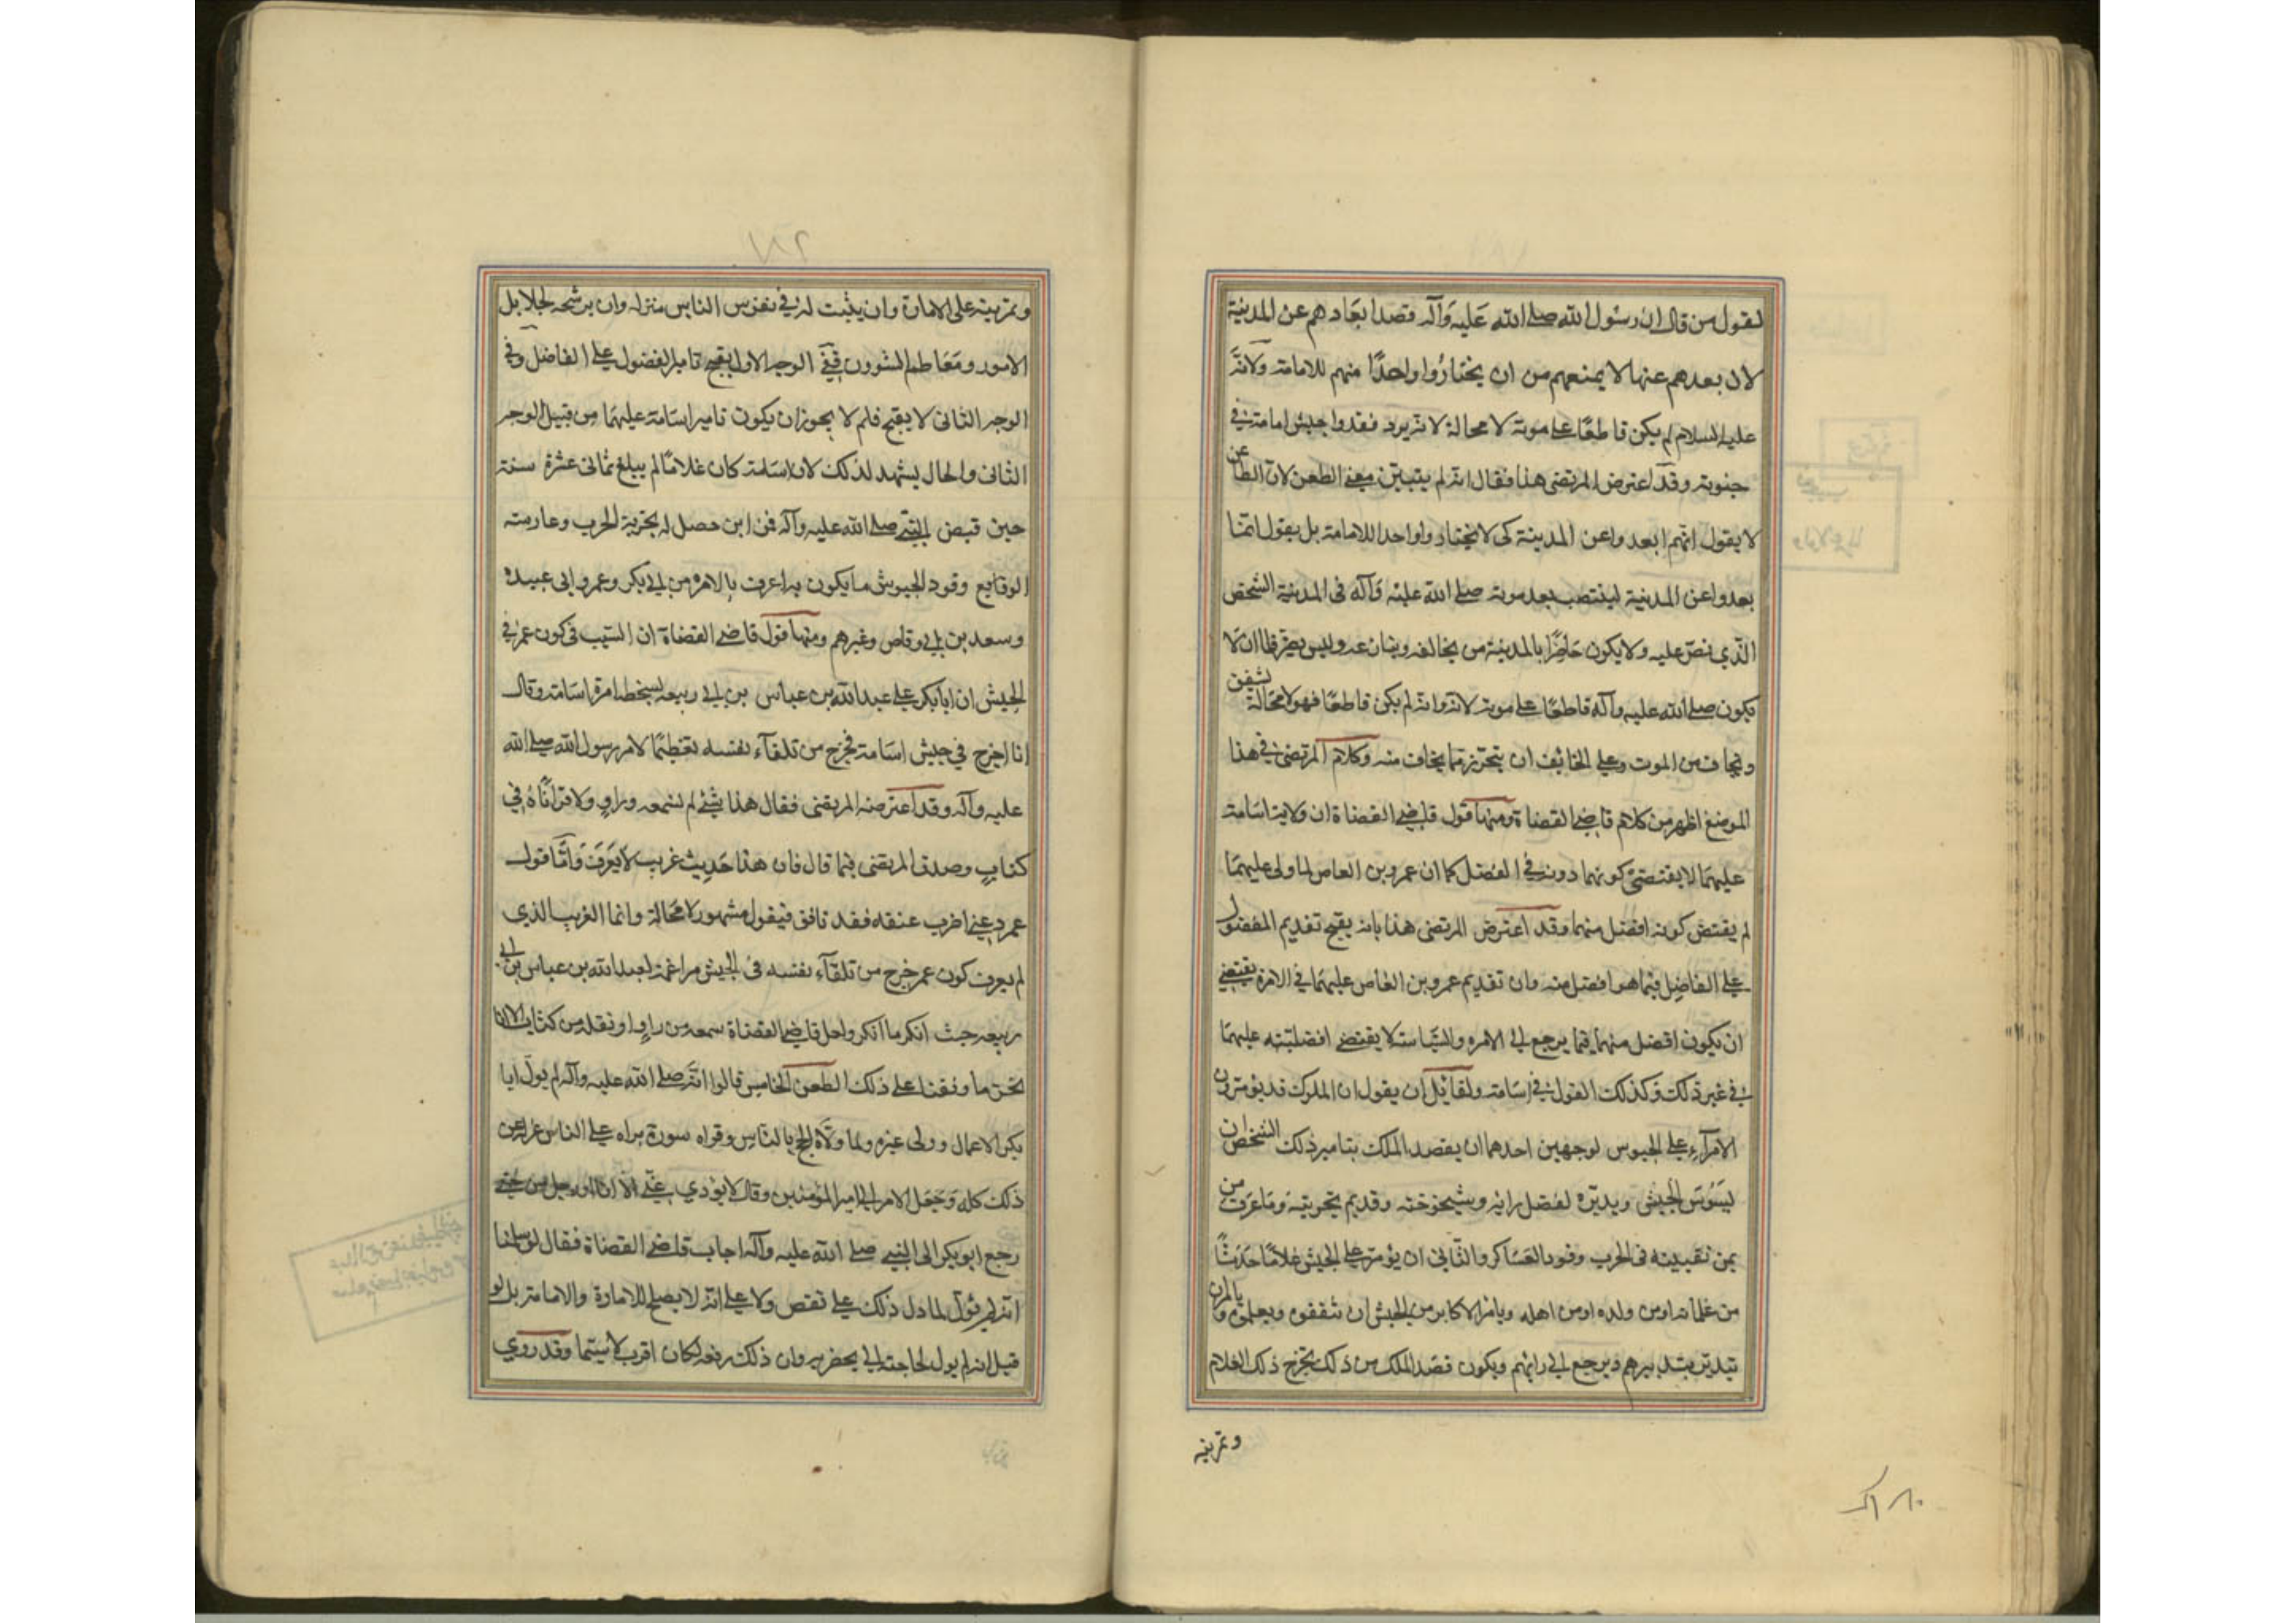 لقول من قال ان رسول الله صلى الله عليه وآله قصد ابعادهم عن المدينة
لان بعدهم عنها لا يمنعهم من ان يختاروا واحدا منهم للامامة ولانه
عليه السلام لم يكن قاطعا على موته لا محالة لانه يرد نفذوا جيش اسامة في
حيوته وقد اعترض المرتضى هذا فقال انه لم يتبين معنى الطعن لان الطاعن
لا يقول انهم ابعدوا عن المدينة كي لا يختاروا واحدا للامامة بل يقول انما
بعدوا عن المدينة لينتصب بعد موته صلى الله عليه وآله في المدينة الشخص
الذي نص عليه ولا يكون حاضرا بالمدينة من يخالفه وينازعه وليس يضرنا ان لا
يكون صلى الله عليه وآله قاطعا على موته لانه وان لم يكن قاطعا فهو لا محالة يشفق
ويخاف من الموت وعلى الخائف ان يتحرز مما يخاف منه وكلام المرتضى في هذا
الموضع اظهر من كلام قاضي القضاة ومنها قول قاضي القضاة ان ولاية اسامة
عليهما لا يقتضي كونهما دونه في الفضل كما ان عمرو بن العاص لما ولى عليهما
لم يقتض كونه افضل منهما وقد اعترض المرتضى هذا بانه يقبح تقديم المفضول
على الفاضل فيما هو افضل منه وان تقديم عمرو بن العاص عليهما في الامرة يقتضي
ان يكون افضل منهما فيما يرجع الى الامره والسياسة لا يقتضي افضليته عليهما
في غير ذلك وكذلك القول في اسامة ولقائل ان يقول ان الملوك قد يؤمرون
الامرآء على الجيوس لوجهين احدهما ان يقصد الملك بتامير ذلك الشخص ان
يسوس الجيش ويدبره لفضل رايه وشيخوخته وقديم تجربته وما عرف من
يمن نقيبته في الحرب وقود العساكر والثاني ان يؤمر على الجيش غلاما حدثا
من غلمانه او من ولده او من اهله ويامر الاكابر من الجيش ان يثقفوه ويعلموه ويامره ان
يتدبر بتدبيرهم ويرجع الى رايهم ويكون قصد الملك من ذلك تخرج ذلك الغلام
وتمرينه
وتمرينه على الامارة وان يثبت له في نفوس الناس منزلة وان يرشحه لجلايل
الامور ومعاظم الشوون ففي الوجه الاول يقبح تامير المفضول على الفاضل وفي
الوجه الثاني لا يقبح فلم لا يجوز ان يكون تامير اسامة عليهما من قبيل الوجه
الثاني والحال يشهد لذلك لان اسامة كان غلاما لم يبلغ ثماني عشرة سنة
حين قبض النبي صلى الله عليه وآله فمن اين حصل له تجربة الحرب وممارسة
الوقايع وقود الجيوش ما يكون به اعرف بالامره من ابي بكر وعمر وابي عبيده
وسعد بن ابي وقاص وغيرهم ومنها قول قاضي القضاة ان السبب في كون عمر في
الجيش ان ابا بكر على عبد الله بن عباس بن ابي ربيعه بسخط امرة اسامة وقال
انا اخرج في جيش اسامة فخرج من تلقآء نفسه تعظيما لامر رسول الله صلى الله
عليه وآله وقد اعترضه المرتضى فقال هذا شئ لم نسمعه من راو ولا قراناه في
كتاب وصدق المرتضى فيما قال فان هذا حديث غريب لا يعرف واما قول
عمر دعني اضرب عنقه فقد نافق فيقول مشهور لا محالة وانما الغريب الذي
لم يعرف كون عمر خرج من تلقآء نفسه في الجيش مراغمة لعبد الله بن عباس بن ابي
ربيعه حيث انكر ما انكر ولعل قاضي القضاة سمعه من راو او نقله من كتاب الا انا
نحن ما وقفنا على ذلك الطعن الخامس قالوا انه صلى الله عليه وآله لم يول ابا
بكر الاعمال وولى غيره ولما ولاه الحج بالناس وقراه سورة براه على الناس عزله عن
ذلك كله وجعل الامر الى امير المؤمنين وقال لا يؤدي عني الا انا او رجل مني حتى
رجع ابو بكر الى النبي صلى الله عليه وآله اجاب قاضي القضاة فقال لو سلمنا
انه لم يول لما دل ذلك على نقص ولا على انه لا يصلح للامارة والامامة بل لو
قيل انه لم يول لحاجته الى بحضرته وان ذلك رفعه لكان اقرب لا سيما وقد روي